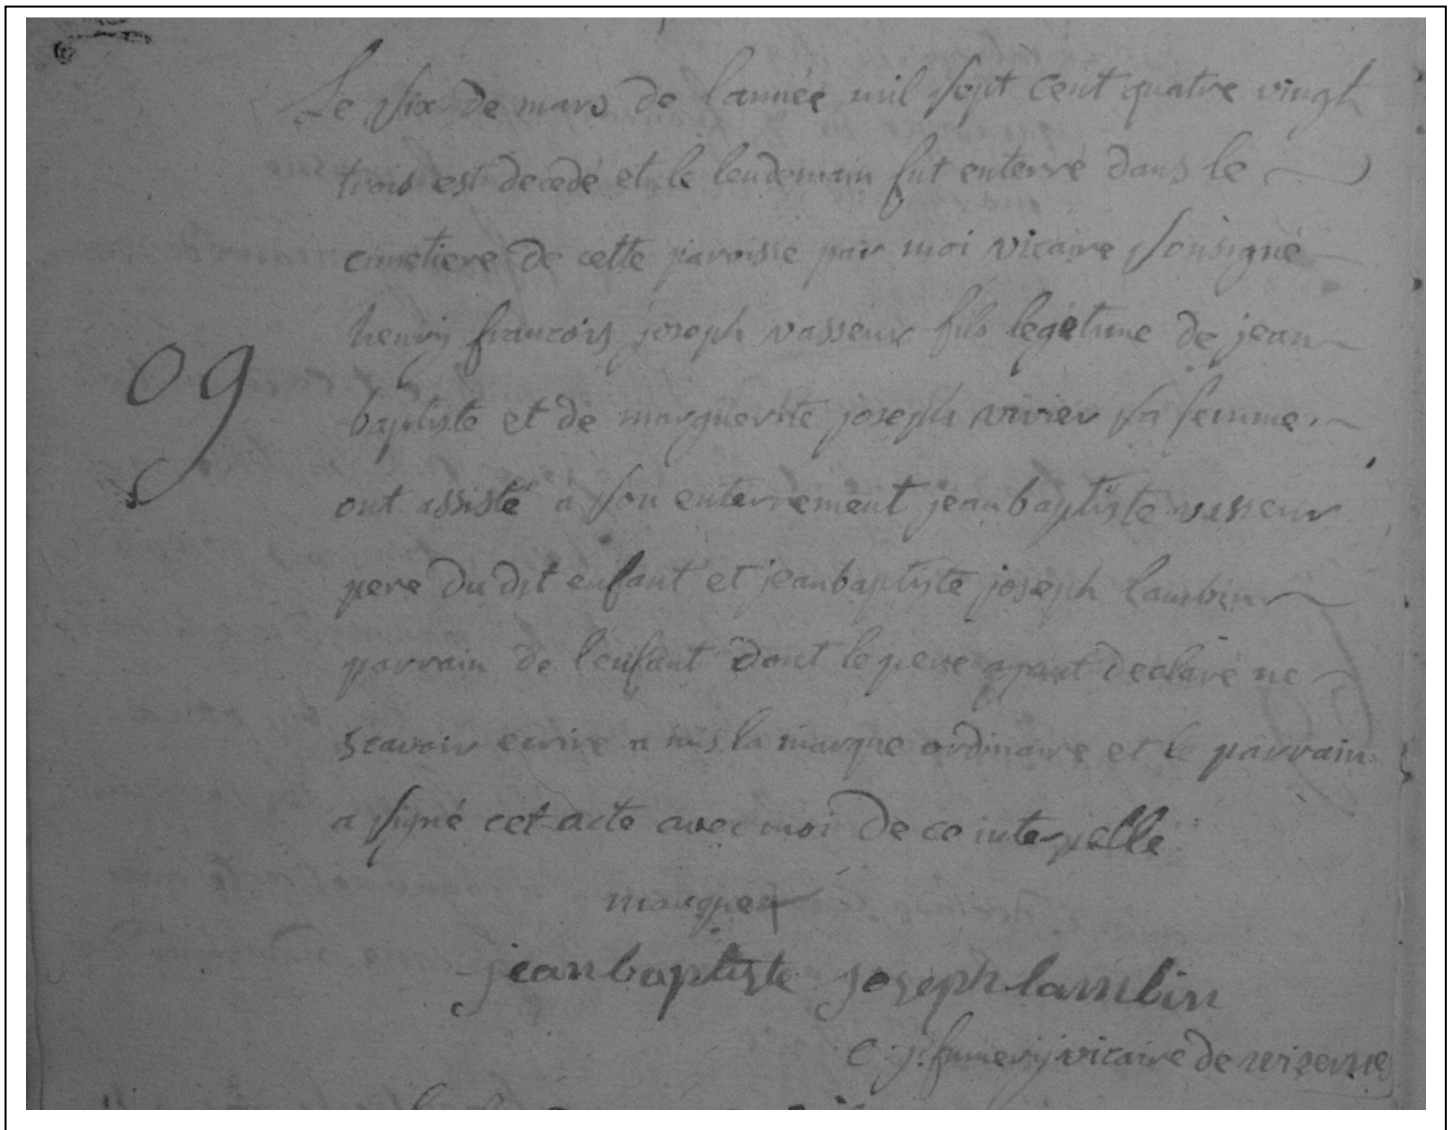 Le six de mars de l'année mil sept cent quatre vingt
trois est decedé et le lendemain fut enterré dans le
cimetiere de cette paroisse par moi vicaire sousigné
09
henry francois joseph vasseur fils legetime de jean
baptiste et de marguerite joseph vivier sa femme.
ont assisté a son enterrement jean baptiste vasseur
pere du dit enfant et jean baptiste joseph lambin
parrain de l'enfant dont le pere ayant declaré ne
scavoir ecrire a mis la marque ordinaire et le parrain
a signé cet acte avec moi de ce interpellé
marque +
jean baptiste joseph lambin
c : j : fumery vicaire de